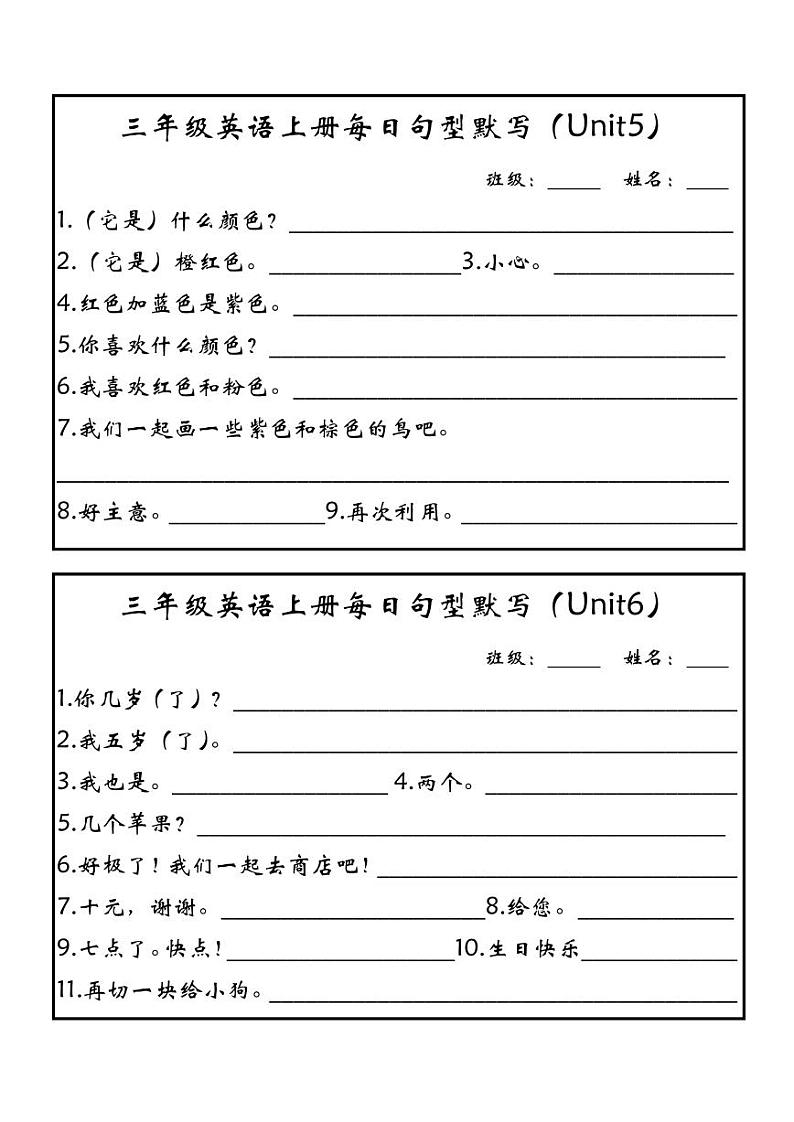 三年级英语上册每日句型默写（Unit5）
班级：_____ 姓名：____
1.（它是）什么颜色？_____________________________________
2.（它是）橙红色。________________3.小心。_______________
4.红色加蓝色是紫色。_____________________________________
5.你喜欢什么颜色？______________________________________
6.我喜欢红色和粉色。_____________________________________
7.我们一起画一些紫色和棕色的鸟吧。
________________________________________________________
8.好主意。_____________9.再次利用。_______________________
三年级英语上册每日句型默写（Unit6）
班级：_____ 姓名：____
1.你几岁（了）？__________________________________________
2.我五岁（了）。__________________________________________
3.我也是。__________________ 4.两个。_____________________
5.几个苹果？____________________________________________
6.好极了！我们一起去商店吧！______________________________
7.十元，谢谢。______________________8.给您。_____________
9.七点了。快点！___________________10.生日快乐_____________
11.再切一块给小狗。_______________________________________